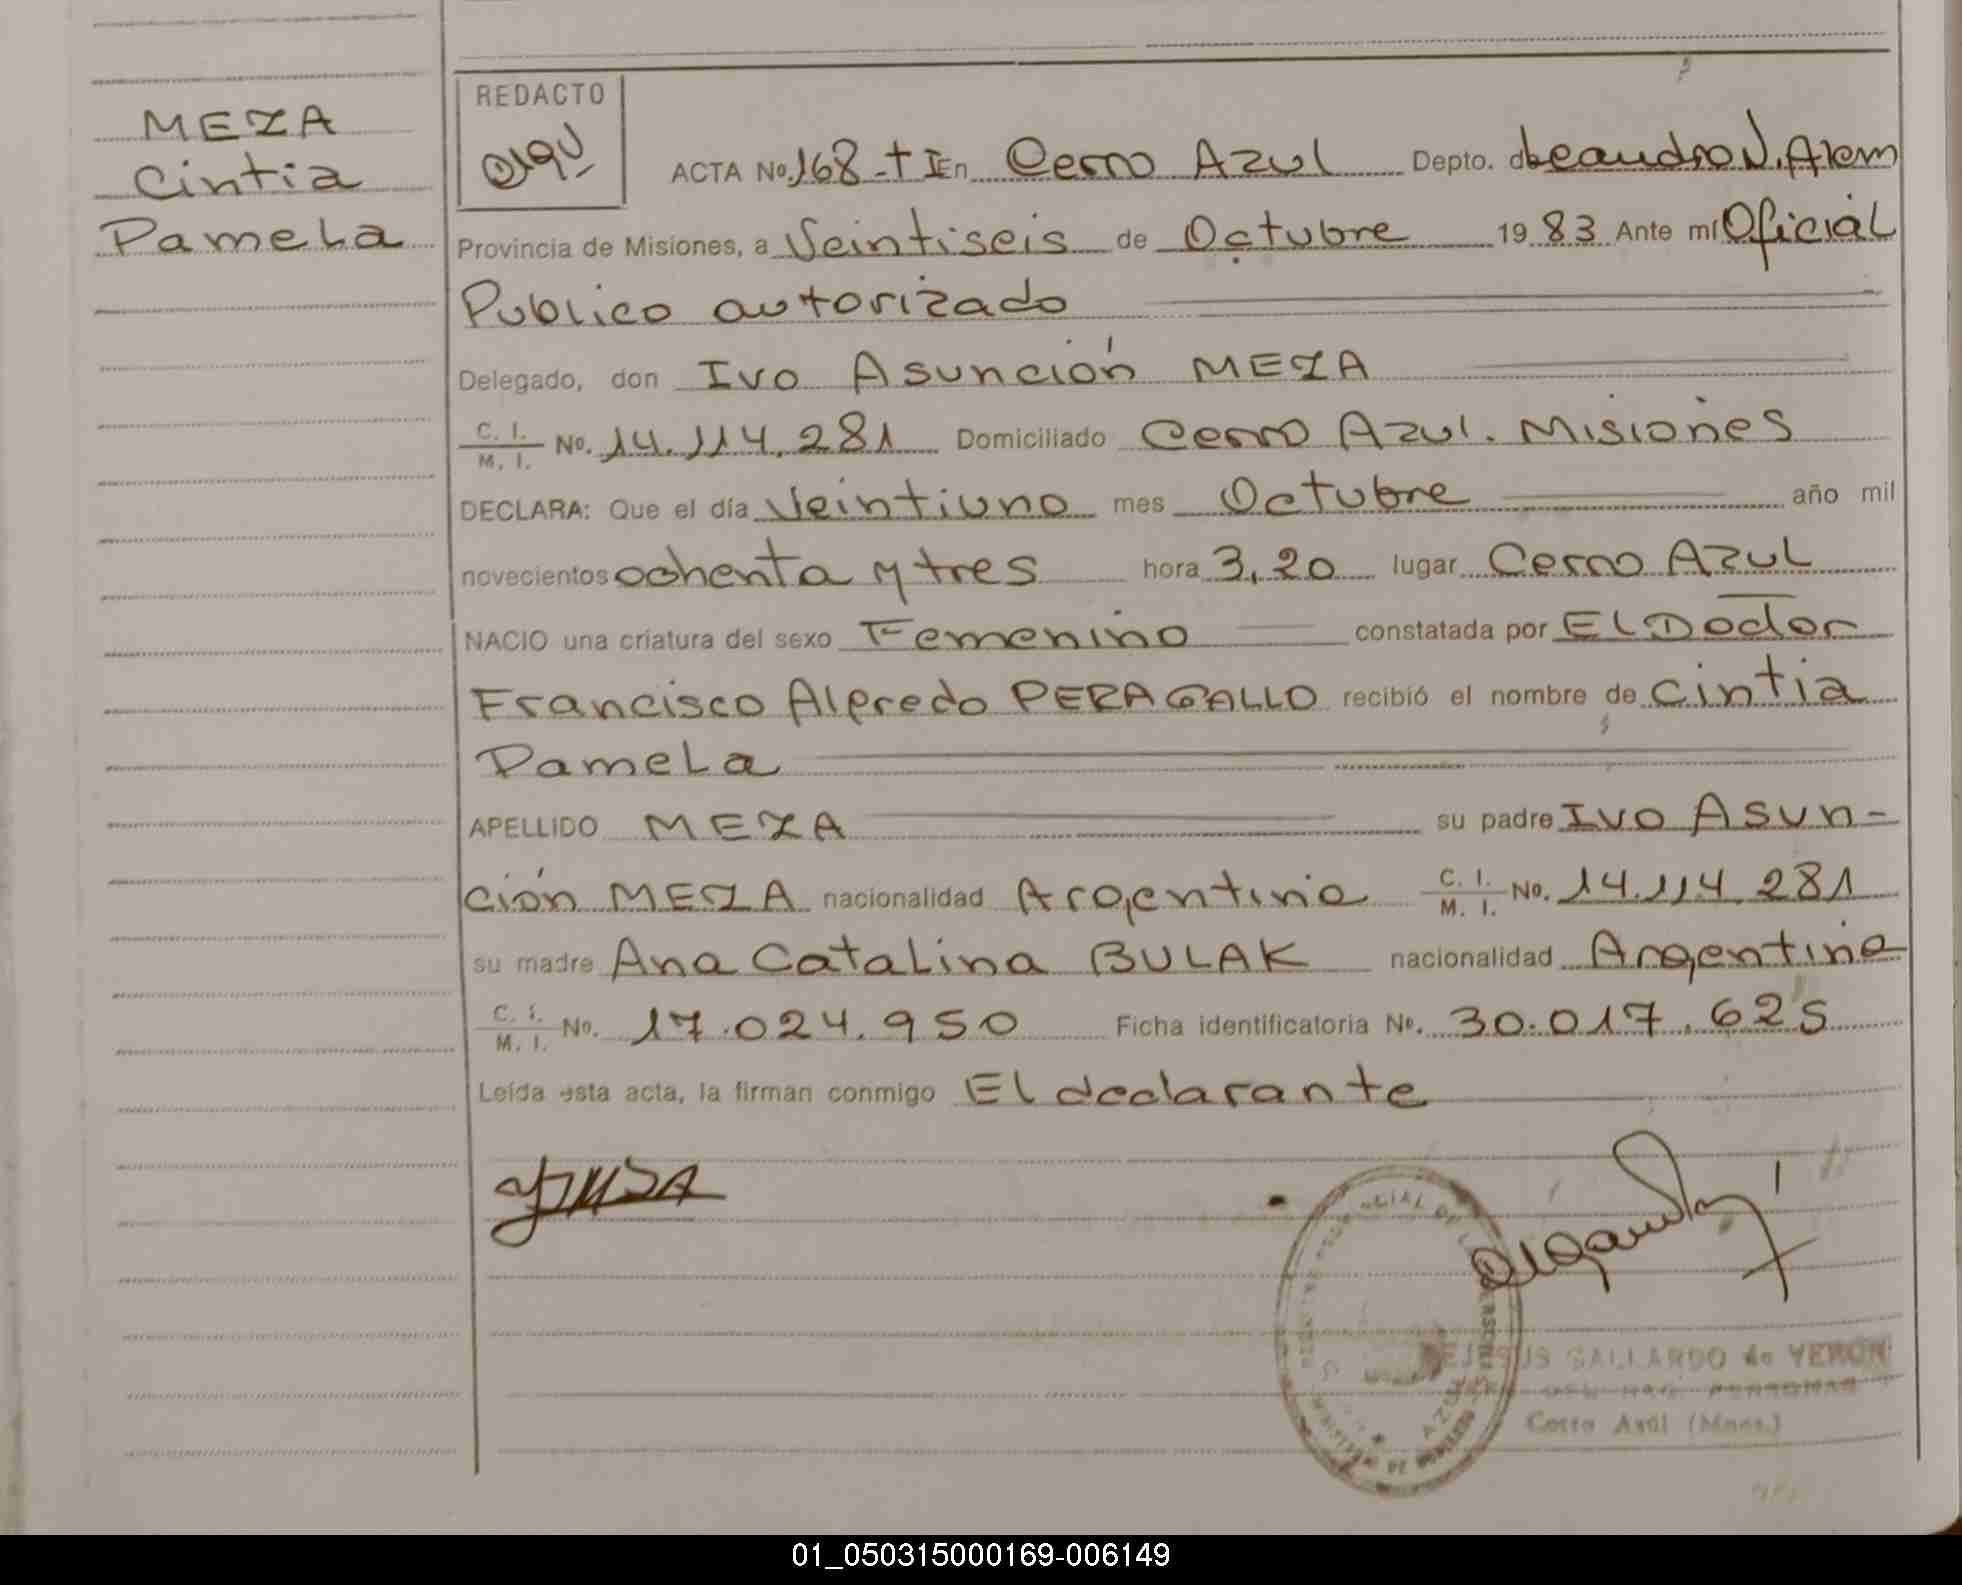 MEZA
Cintia
Pamela
REDACTO
ACTA No. 168-T I En Cerro Azul Depto. de Leandro N. Alem
Provincia de Misiones, a Veintiseis de Octubre 19 83 Ante mí Oficial
Publico autorizado
Delegado, don Ivo Asunción MEZA
C. I. / M. I. No. 14.114.281 Domiciliado Cerro Azul. Misiones
DECLARA: Que el día Veintiuno mes Octubre año mil
novecientos ochenta y tres hora 3,20 lugar Cerro Azul
NACIO una criatura del sexo Femenino constatada por El Doctor
Francisco Alfredo PERAGALLO recibió el nombre de Cintia
Pamela
APELLIDO MEZA su padre Ivo Asun-
ción MEZA nacionalidad Argentina C. I. / M. I. No. 14.114.281
su madre Ana Catalina BULAK nacionalidad Argentina
C. I. / M. I. No. 17.024.950 Ficha identificatoria No. 30.017.625
Leída esta acta, la firman conmigo El declarante
JESUS GALLARDO de VERON
Cerro Azúl (Mnes.)
01_050315000169-006149